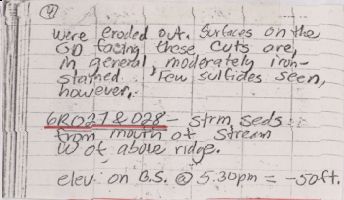 4
were eroded out. Surfaces on the
GD facing these cuts are,
in general, moderately iron-
stained. Few sulfides seen,
however.
6R027 & 028 - strm seds.
from mouth of stream
W of above ridge.
elev. on B.S. @ 5:30pm = -50ft.